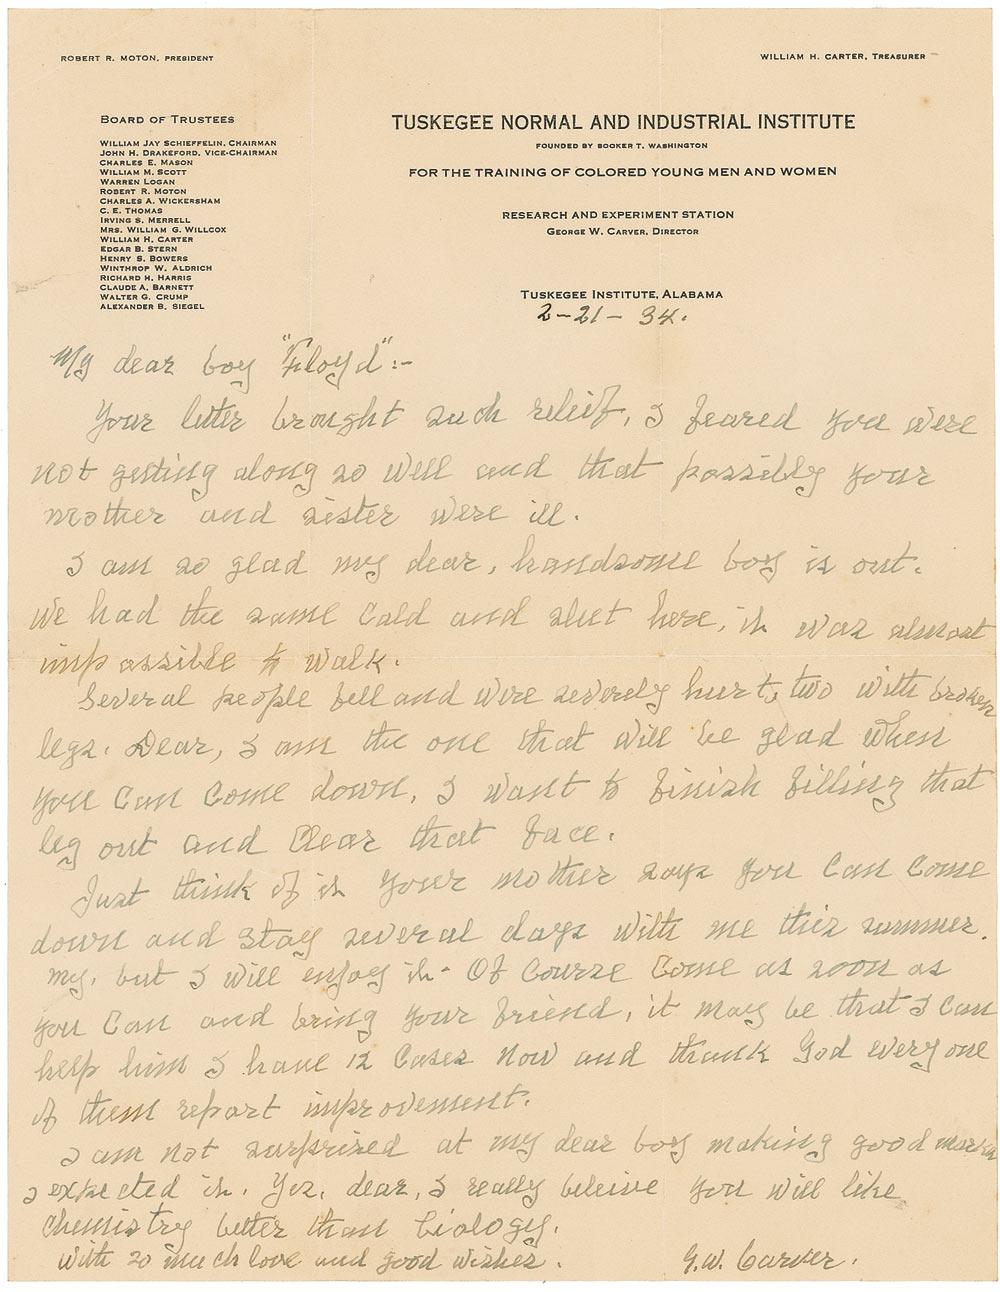 ROBERT R. MOTON, PRESIDENT
WILLIAM H. CARTER, TREASURER
BOARD OF TRUSTEES
WILLIAM JAY SCHIEFFELIN, CHAIRMAN
JOHN H. DRAKEFORD, VICE-CHAIRMAN
CHARLES E. MASON
WILLIAM M. SCOTT
WARREN LOGAN
ROBERT R. MOTON
CHARLES A. WICKERSHAM
C. E. THOMAS
IRVING S. MERRELL
MRS. WILLIAM G. WILLCOX
WILLIAM H. CARTER
EDGAR B. STERN
HENRY S. BOWERS
WINTHROP W. ALDRICH
RICHARD H. HARRIS
CLAUDE A. BARNETT
WALTER G. CRUMP
ALEXANDER B. SIEGEL
TUSKEGEE NORMAL AND INDUSTRIAL INSTITUTE
FOUNDED BY BOOKER T. WASHINGTON
FOR THE TRAINING OF COLORED YOUNG MEN AND WOMEN
RESEARCH AND EXPERIMENT STATION
GEORGE W. CARVER, DIRECTOR
TUSKEGEE INSTITUTE, ALABAMA
2-21-34.
My dear boy "Floyd":-
Your letter brought such releif, I feared you were
not getting along so well and that possibly your
mother and sister were ill.
I am so glad my dear, handsome boy is out.
We had the same cold and sleet here, it was almost
impossible to walk.
Several people fell and were severely hurt, two with broken
legs. Dear, I am the one that will be glad when
you can come down, I want to finish filling that
leg out and clear that face.
Just think of it your mother says you can come
down and stay several days with me this summer.
my, but I will enjoy it. Of course come as soon as
you can and bring your friend, it may be that I can
help him I have 12 cases now and thank God every one
of them report improvement.
I am not surprised at my dear boy making good marks
I expected it. Yes, dear, I really beleive you will like
chemistry better than biology.
With so much love and good wishes.
G.W. Carver.